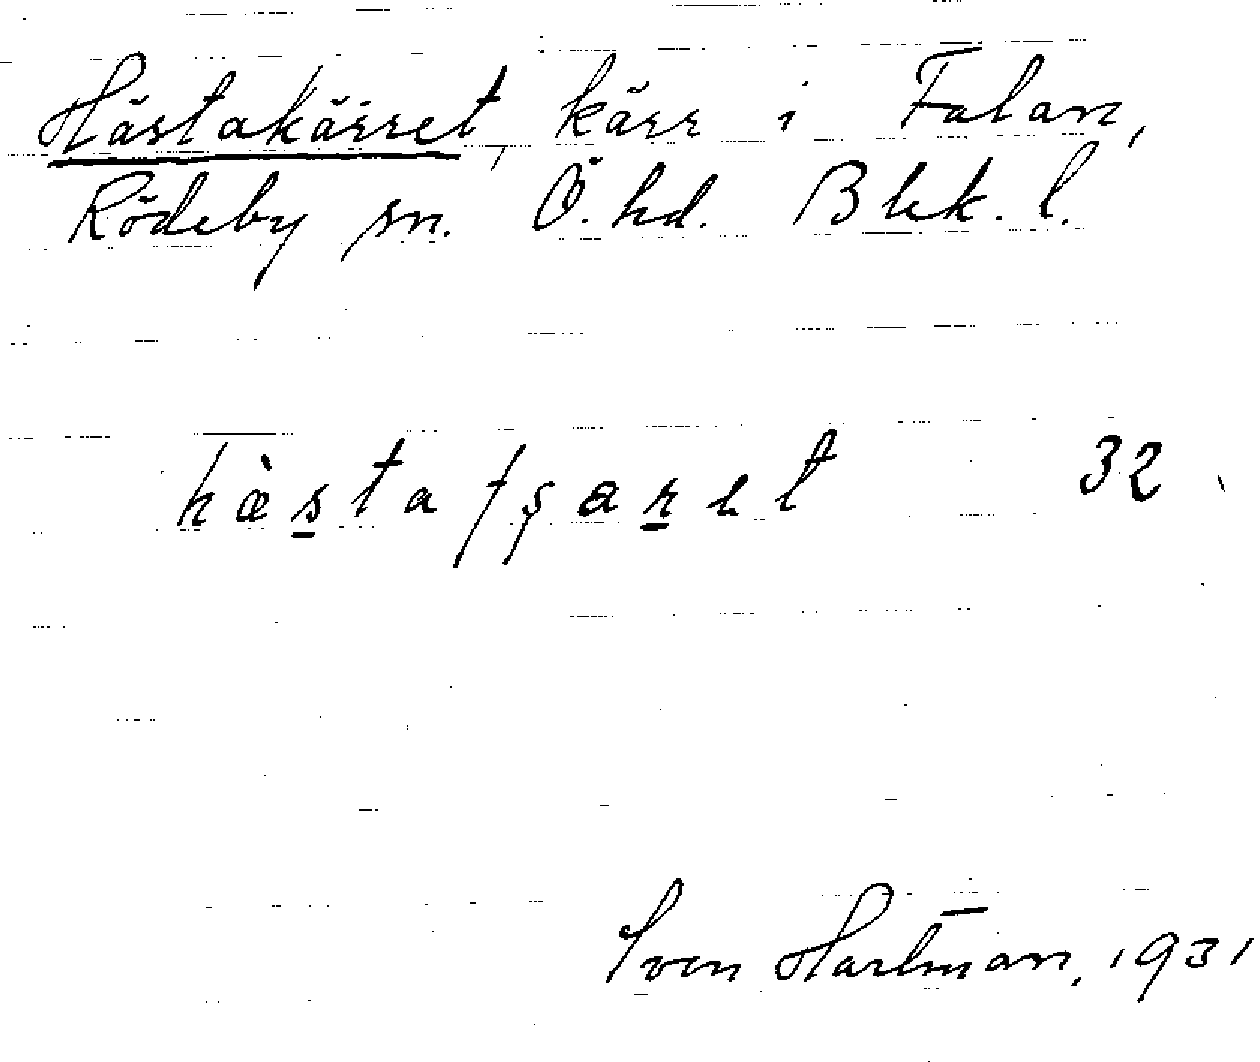 Hästakärret, kärr i Falan,
Rödeby sn. Ö. hd. Blek. l.
32
Sven Hartman, 1931